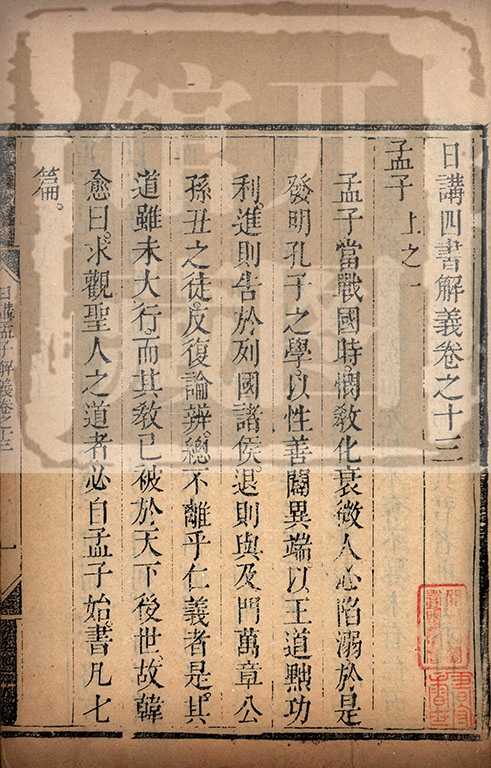 日講四書解義卷之十三
孟子 上之一
孟子當戰國時憫敎化衰微人心陷溺於是
發明孔子之學以性善闢異端以王道黜功
利。進則告於列國諸侯。退則與及門萬章公
孫丑之徒。反復論辨。總不離乎仁義者是。其
道雖未大行。而其敎已被於天下後世。故韓
愈曰。求觀聖人之道者必自孟子始。書凡七
篇。
日講孟子解義卷之十三
一